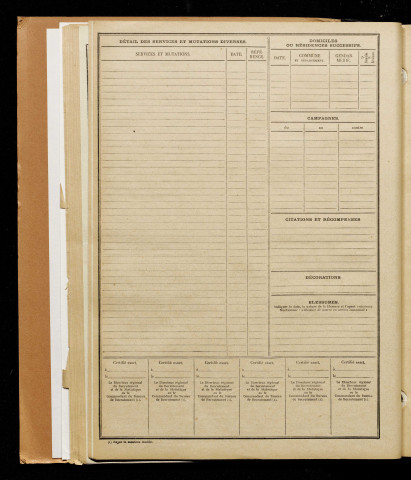 DÉTAIL DES SERVICES ET MUTATIONS DIVERSES.
SERVICES ET MUTATIONS.
DATE.
DOMICILES
OU RÉSIDENCES SUCCESSIFS.
DATE.
COMMUNE
CAMPAGNES.
du
au
contre
CITATIONS ET RÉCOMPENSES
DÉCORATIONS.
BLESSURES.
Certifié exact,
Certifié exact,
Certifié exact,
Certifié exact,
Certifié exact,
Certifié exact,
Le Directeur régional
du Recrutement
et de la Statistique
ou le
Commandant du Bureau
de Recrutement (1).
Le Directeur régional
du Recrutement
et de la Statistique
ou le
Commandant du Bureau
de Recrutement (1).
Le Directeur régional
du Recrutement
et de la Statistique
ou le
Commandant du Bureau
de Recrutement (1).
Le Directeur régional
du Recrutement
et de la Statistique
ou le
Commandant du Bureau
de Recrutement (1).
Le Directeur régional
du Recrutement
et de la Statistique
ou le
Commandant du Bureau
de Recrutement (1).
Le Directeur régional
du Recrutement
et de la Statistique
ou le
Commandant du Bureau
de Recrutement (1).
(1) Rayer la mention inutile.